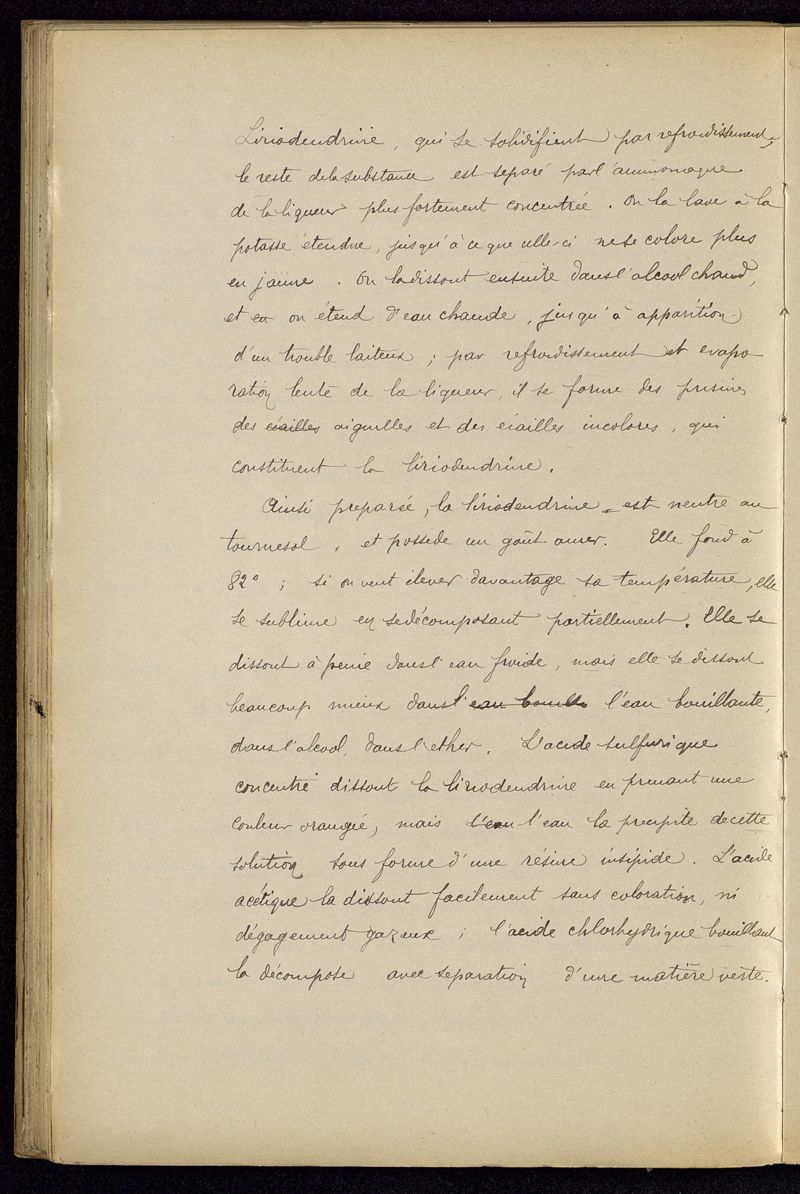 Liriodendrine, qui se solidifient par refroidissement,
le reste de la substance est séparé par l'ammoniaque
de la liqueur plus fortement concentrée. On la lave à la
potasse étendue, jusqu'à ce que celle-ci ne se colore plus
en jaune. On la dissout ensuite dans l'alcool chaud,
et en on étend d'eau chaude, jusqu'à apparition
d'un trouble laiteux ; par refroidissement et evapo
ration lente de la liqueur, il se forme des prismes
des écailles aiguilles et des écailles incolores, qui
constituent la liriodendrine.
Ainsi preparée, la liriodendrine est neutre au
tournesol, et possède un goût amer. Elle fond à
82° ; si on veut élever davantage sa température, elle
se sublime en se décomposant partiellement. Elle se
dissout à peine dans l'eau froide, mais elle se dissout
beaucoup mieux dans l'eau bouill l'eau bouillante,
dans l'alcool, dans l'ether. L'acide sulfurique
concentré dissout la liriodendrine en prenant une
couleur orangée, mais l'eau l'eau la precipite de cette
solution sous forme d'une résine insipide. L'acide
acétique la dissout facilement sans coloration, ni
dégagement gazeux ; l'acide chlorhydrique bouillant
la décompose avec separation d'une matière verte.